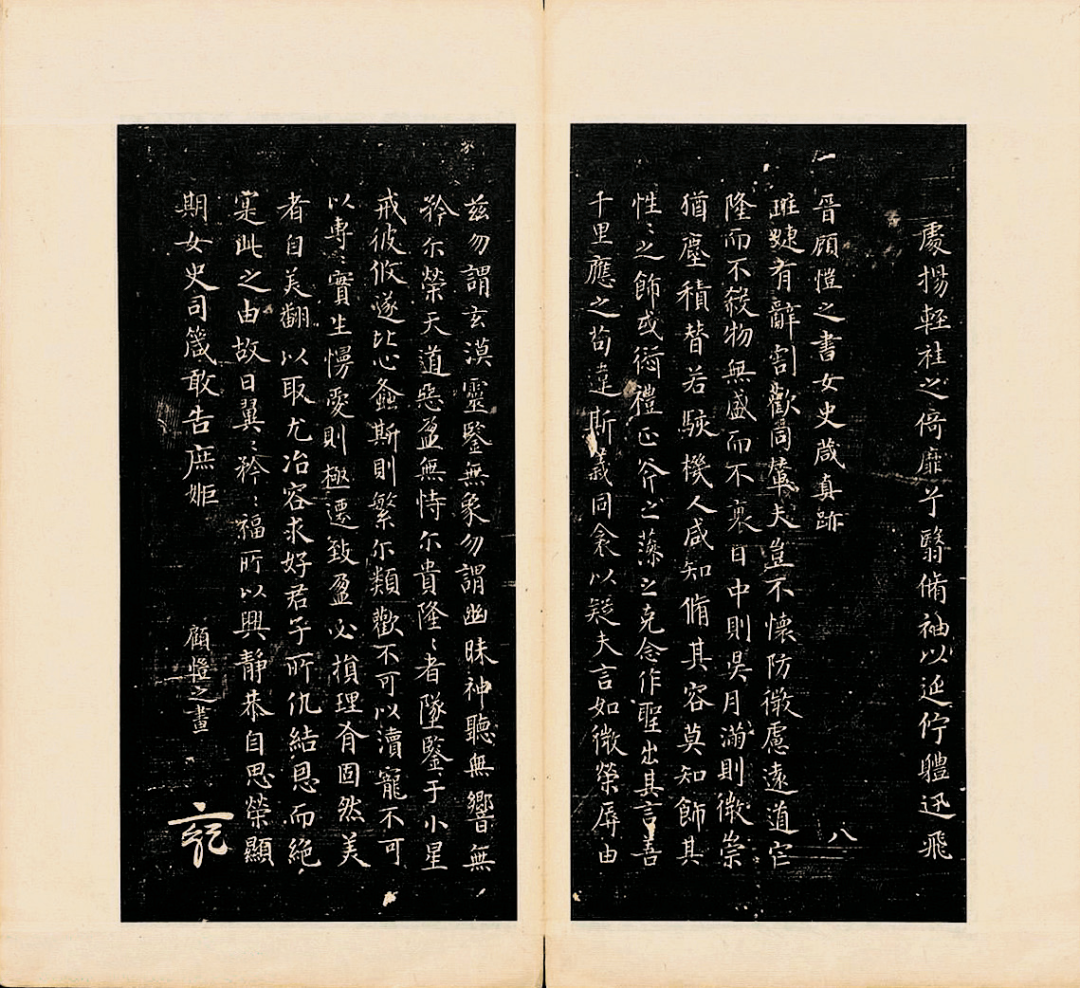 處揚輕袿之倚靡兮翳脩袖以延佇體迅飛
晉顧愷之書女史箴真跡
八
班婕有辭割歡同輦夫豈不懷防微慮遠道罔
隆而不殺物無盛而不衰日中則昃月滿則微崇
猶塵積替若駭機人咸知脩其容莫知飾其
性〻之飾或愆禮正斧之藻之克念作聖出其言善
千里應之苟違斯義同衾以疑夫言如微榮辱由
茲勿謂玄漠靈鑒無象勿謂幽昧神聽無響無
矜尔榮天道惡盈無恃尔貴隆〻者墜鑒于小星
戒彼攸遂比心螽斯則繁尔類歡不可以瀆寵不可
以專〻實生慢愛則極遷致盈必損理有固然美
者自美翩以取尤冶容求好君子所仇結恩而絕
寔此之由故曰翼〻矜〻福所以興靜恭自思榮顯
期女史司箴敢告庶姬
顧愷之畫